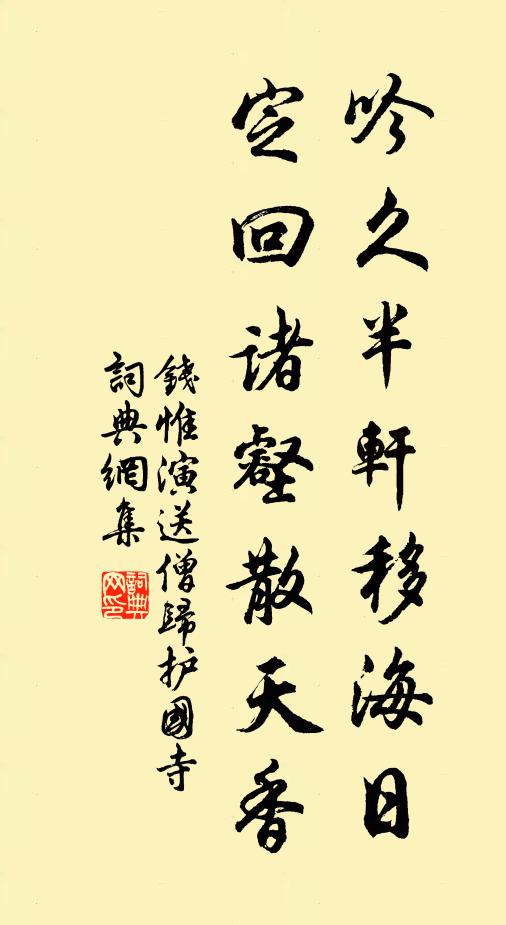 吟久半軒移海日
定回诸壑散天香
錢惟演送僧歸护國寺
詞典網集
詞典网印